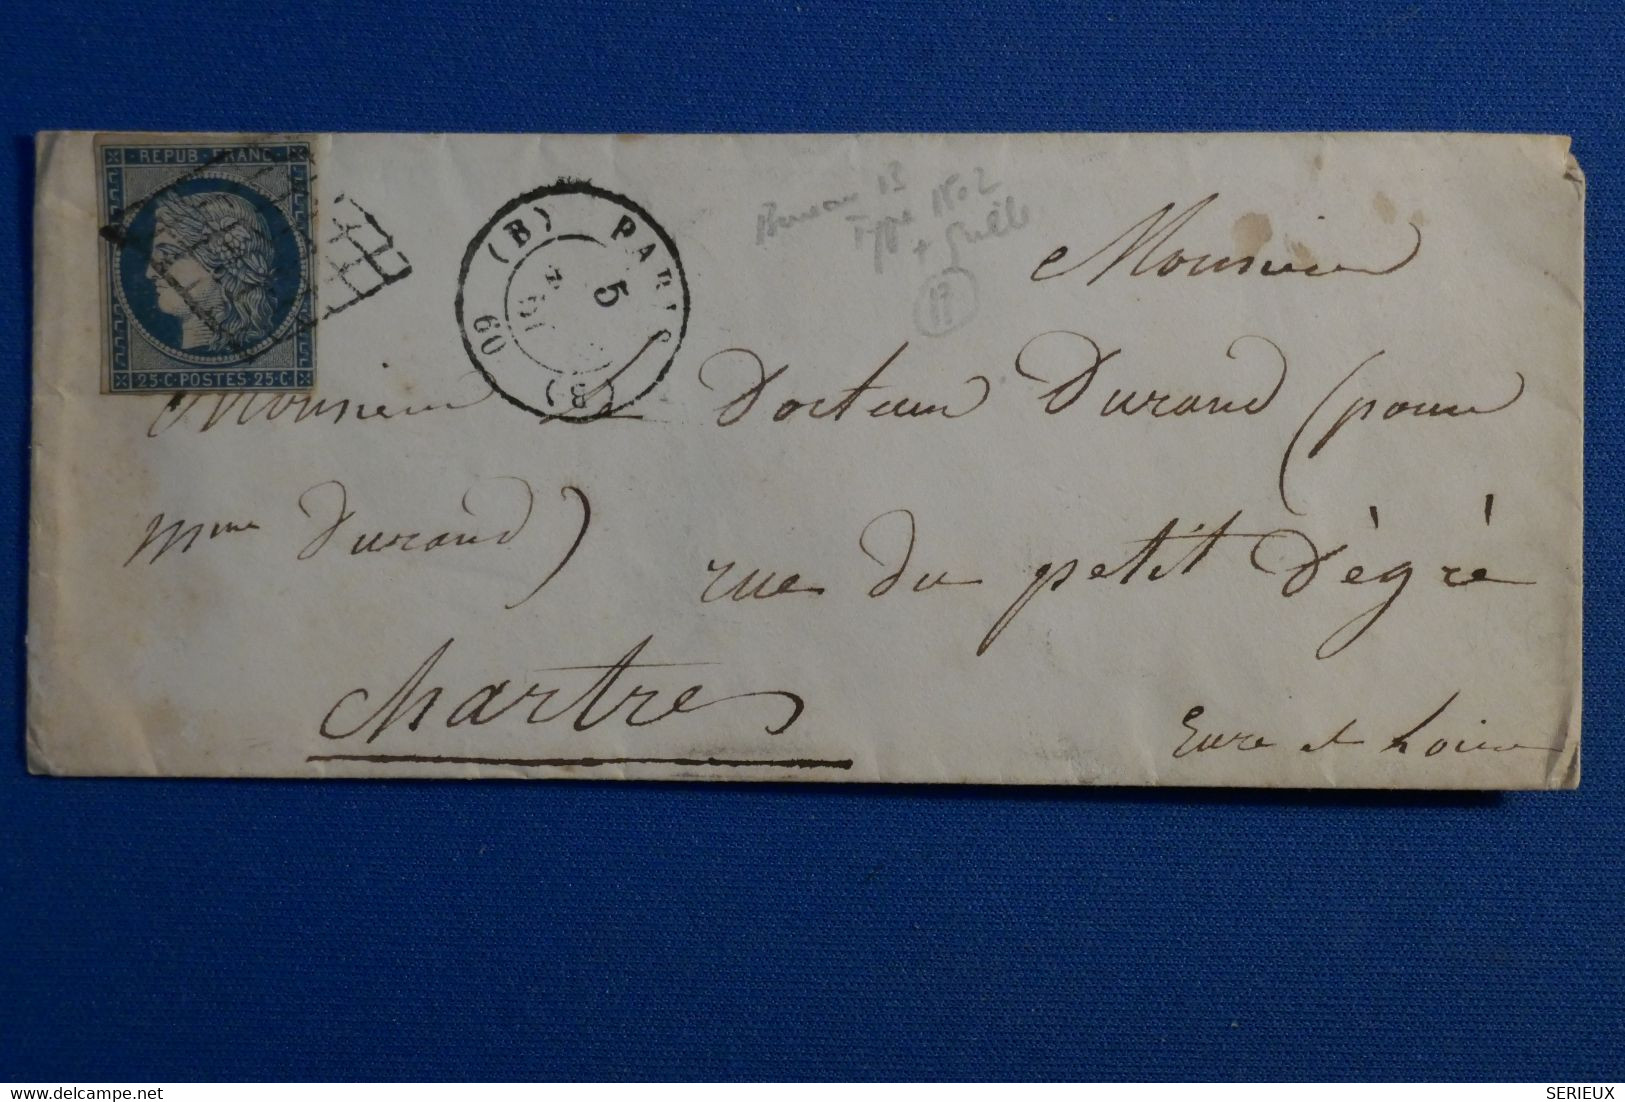 REPUB·FRANC·
25·C·POSTES·25·C·
PARIS (B)
5
60
(B)
Bureau B
Type 15.2
+ Grille
Monsieur
Monsieur le Docteur Durand (pour
Mme Durand) rue du petit Dègrè
Chartres
Eure et Loire
SERIEUX